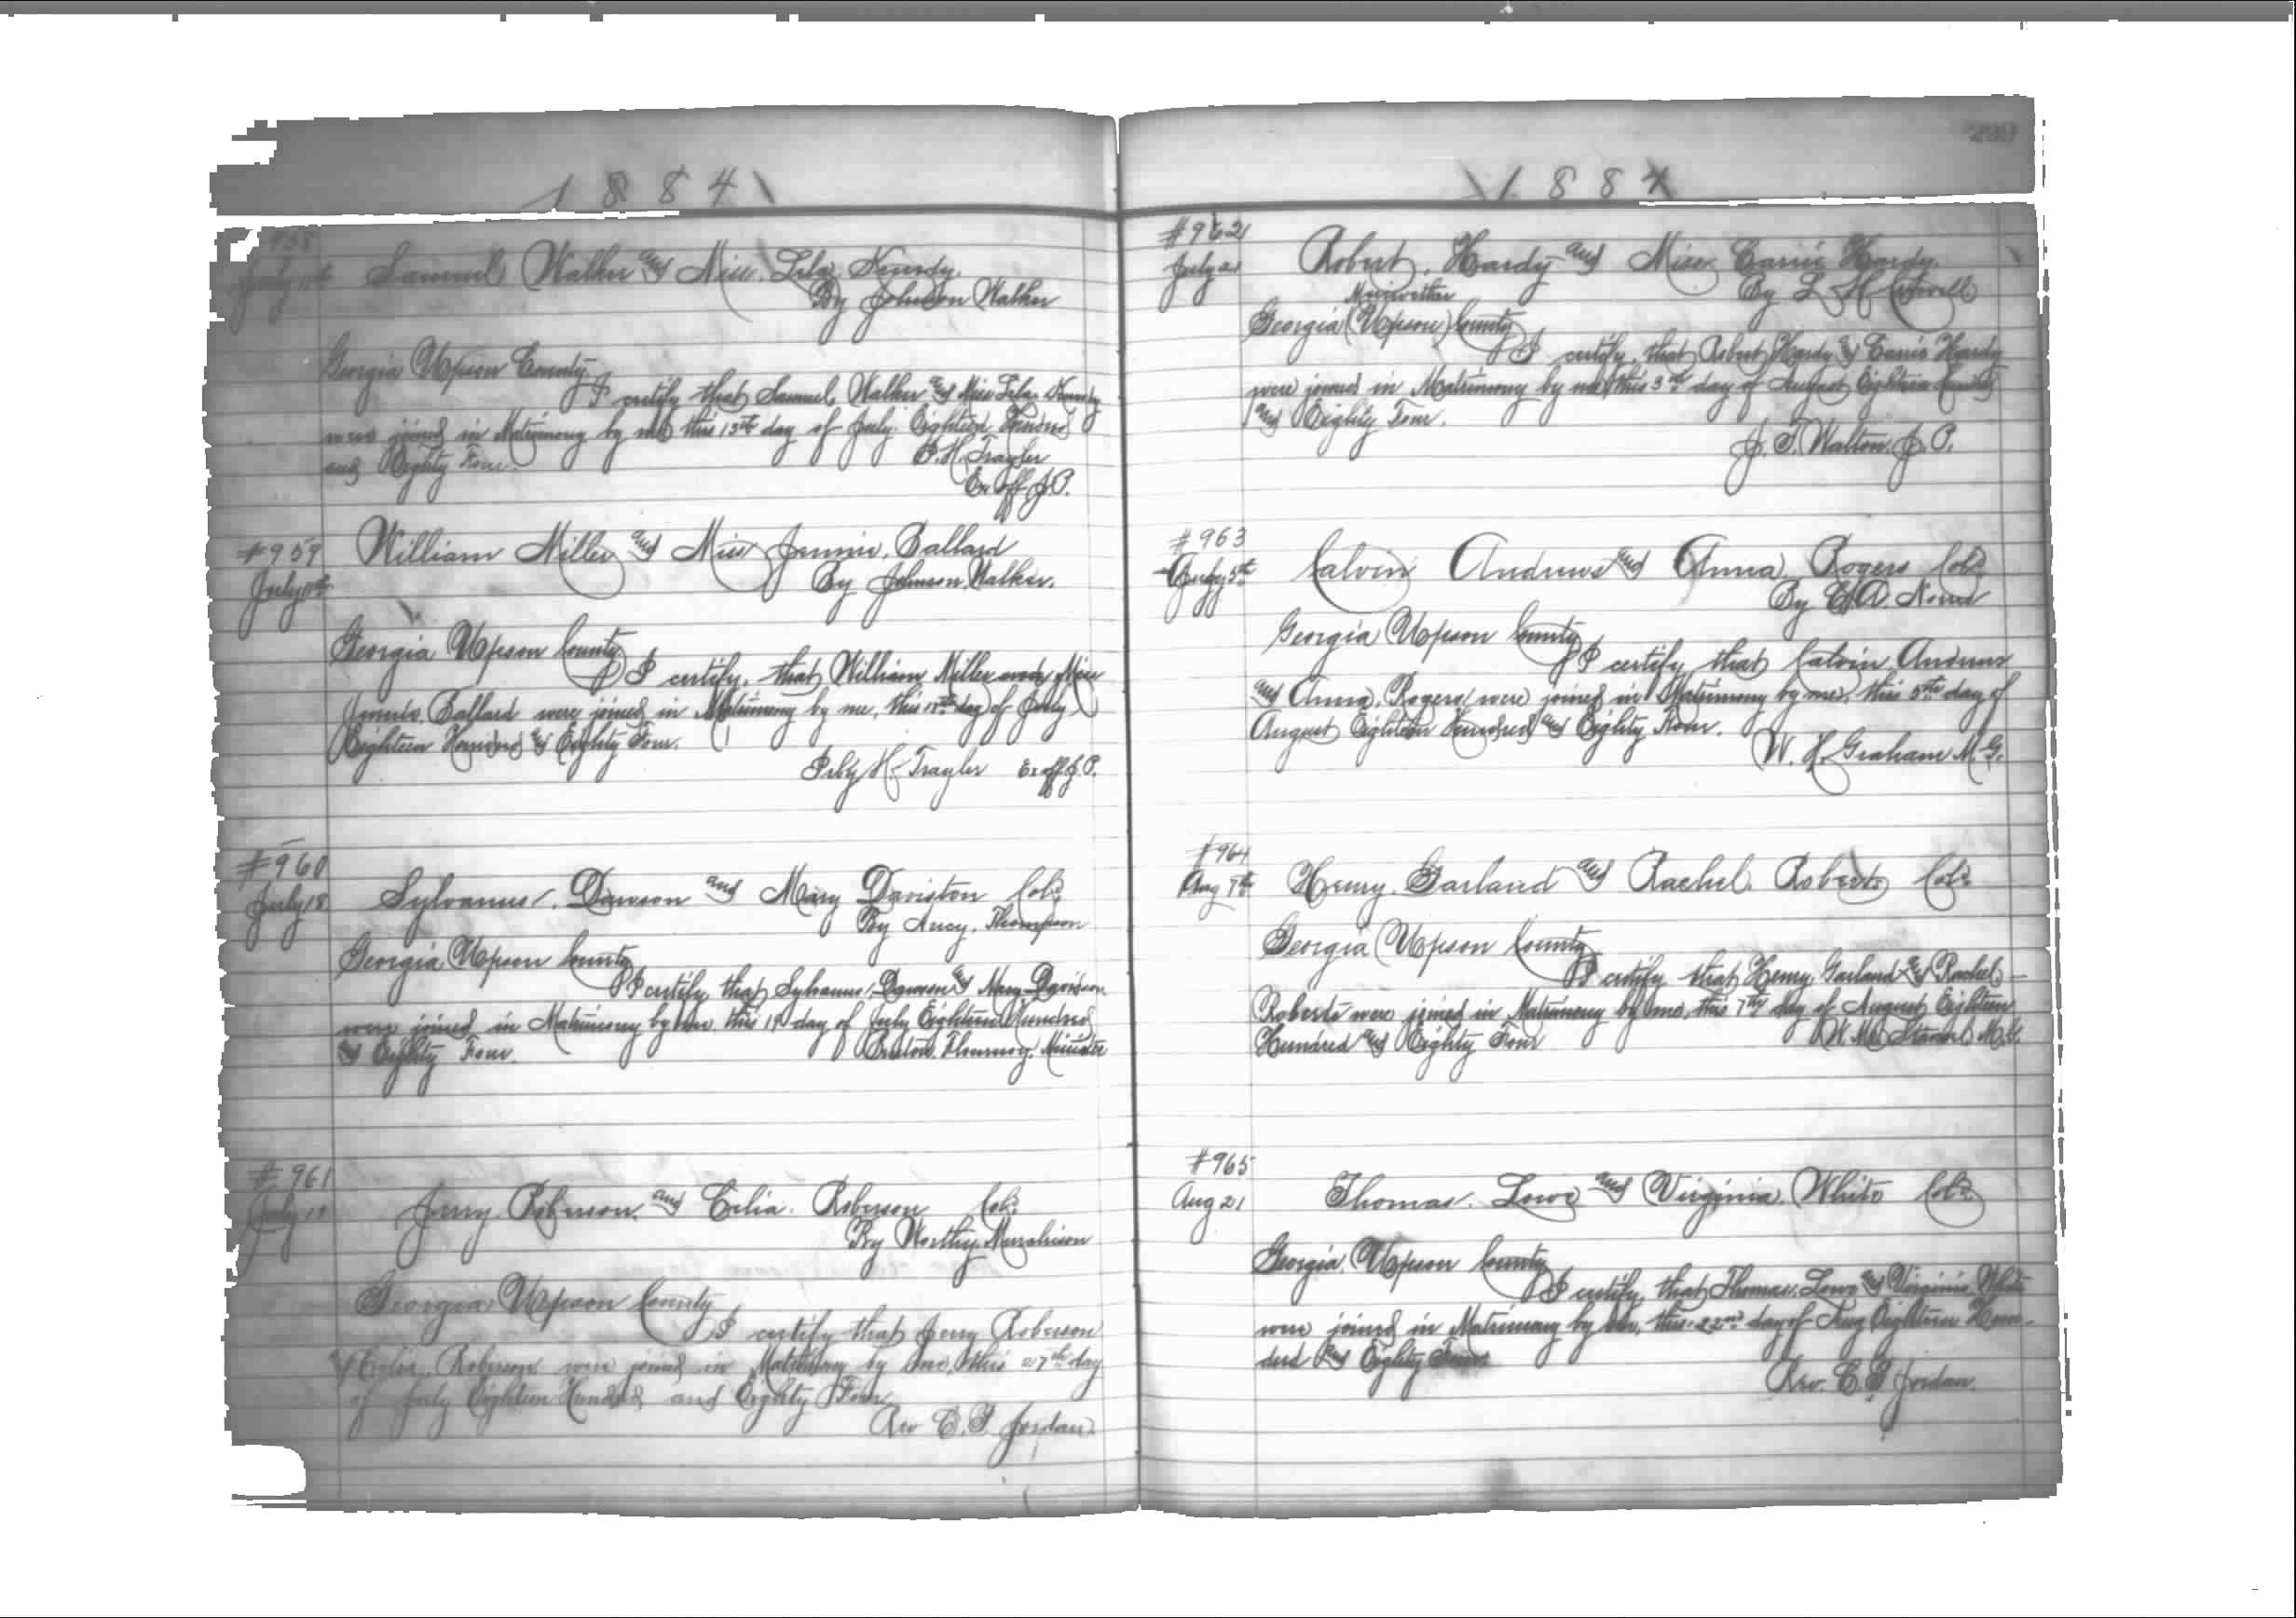 1884
958
July 11th
Samuel Walker and Miss Lela
By Johnson Walker
Georgia Upson County
I certify that Samuel Walker and Miss Lela
were joined in Matrimony by me this 13th day of July Eighteen Hundred
and Eighty Four.
H. Trayler
Ex off J.P.
#959
July 11th
William Miller and Miss Jennie Ballard
By Johnson Walker.
Georgia Upson County
I certify, that William Miller and Miss
Ballard were joined in Matrimony by me, this 13th day of July
Eighteen Hundred and Eighty Four.
H. Trayler Ex off J.P.
#960
July 18
Sylvanus Dawson and Mary Daviston Cold
By Thompson
Georgia Upson County
I certify that Sylvanus Dawson and Mary
were joined in Matrimony by me this 19 day of July Eighteen Hundred
and Eighty Four. Flournoy, Minister
#961
July
Jerry Roberson and Celia Roberson Cold
By Worthy Murchison
Georgia Upson County
I certify that Jerry Roberson
& Celia Roberson were joined in Matrimony by me this 27th day
of July Eighteen Hundred and Eighty Four
Rev C. Jordan.
1884
#962
July 21
Robert Hardy and Miss Carrie Hardy
By L H
Meriwether
Georgia (Upson) County
I certify, that Robert Hardy & Carrie Hardy
were joined in Matrimony by me this 3rd day of August Eighteen Hundred
and Eighty Four.
J. T. Walton J.P.
#963
5th
Calvin Andrews and Anna Rogers Cold
By A.
Georgia Upson County
I certify that Calvin Andrews
and Anna Rogers were joined in Matrimony by me, this 5th day of
August Eighteen Hundred and Eighty Four.
W. H. Graham M.G.
#964
Aug 7th
Henry Garland and Rachel Roberts Cold
Georgia Upson County
I certify that Henry Garland and Rachel
Roberts were joined in Matrimony by me, this 7th day of August Eighteen
Hundred and Eighty Four
#965
Aug 21
Thomas Lowe and Virginia White Cold
Georgia Upson County
I certify, that Thomas Lowe and Virginia White
were joined in Matrimony by me, this 22nd day of Aug Eighteen Hun-
dred and Eighty Four
Rev. C. Jordan.